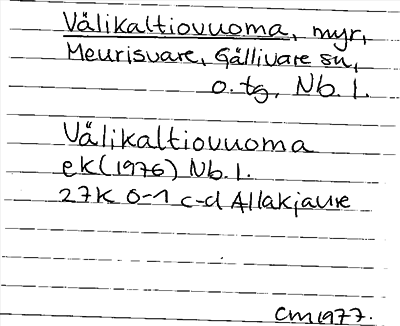 Välikaltiovuoma, myr,
Meurisvare, Gällivare sn,
o. tg, Nb. l.
Välikaltiovuoma
ek (1976) Nb. l.
27K 0-1 c-d Allakjaure
CM 1977.